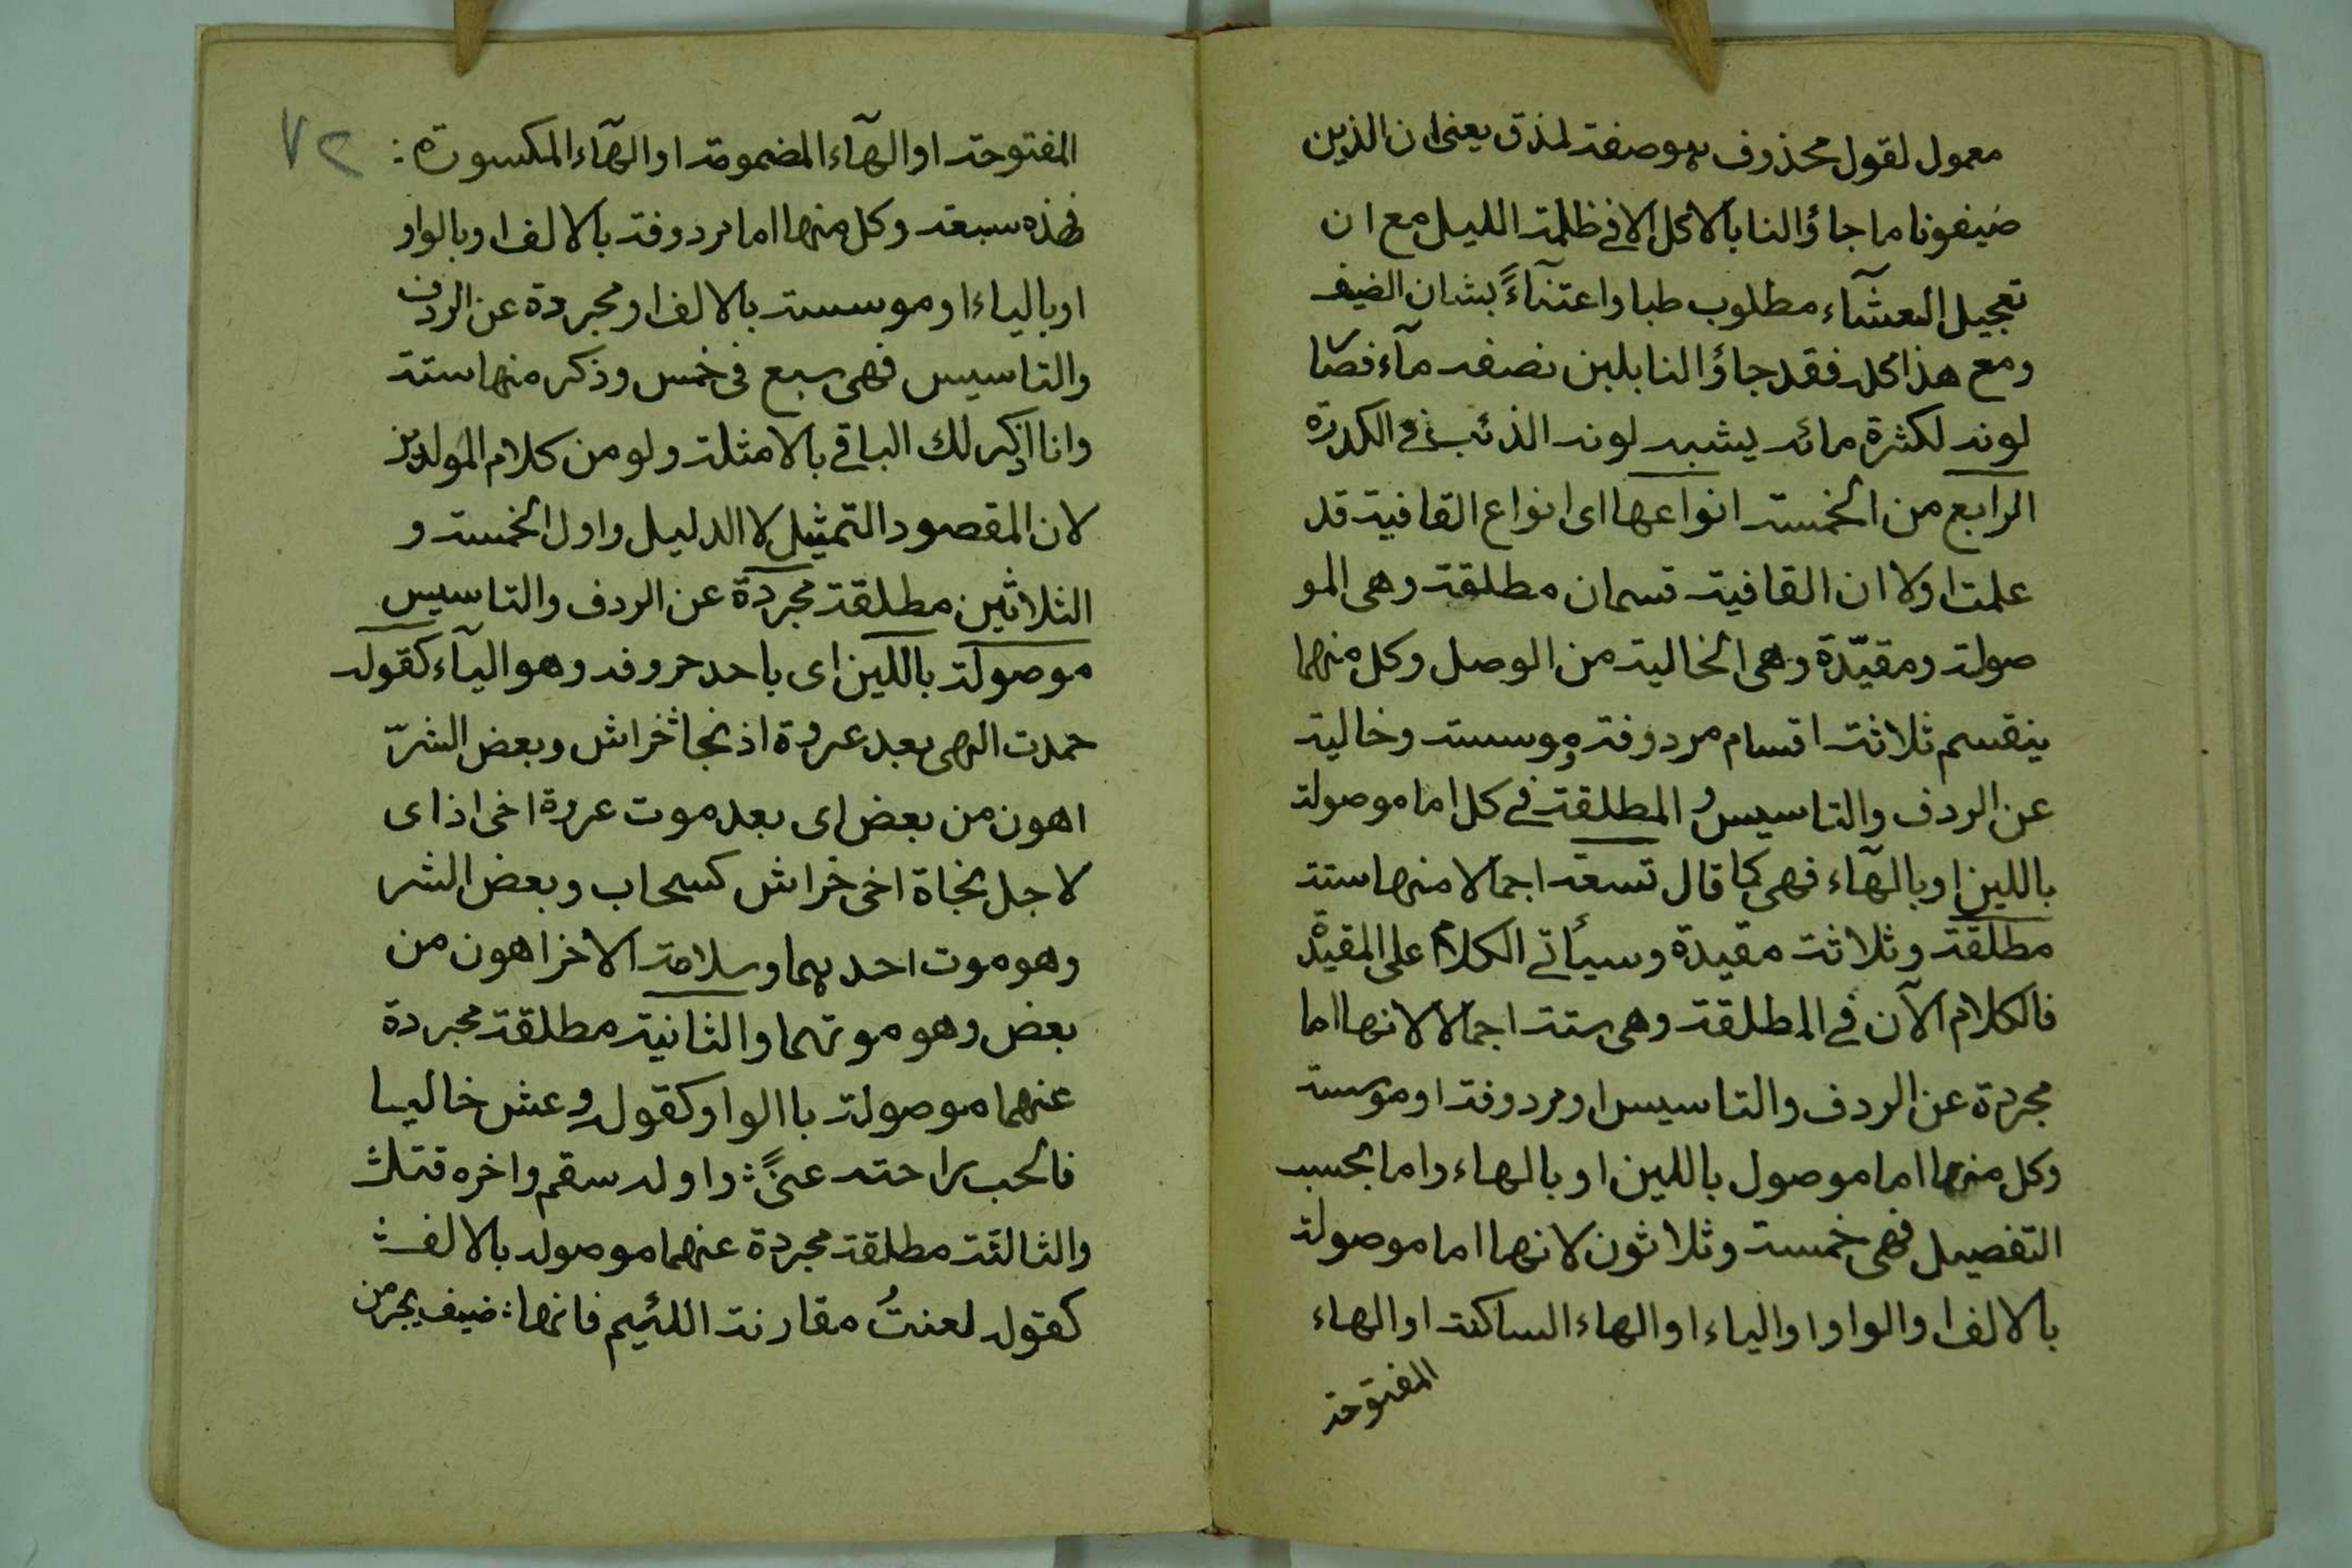 معمول لقول محذوف هو صفة لمذق يعنى ان الذين
ضيفونا ما جاؤا لنا بالاكل الا فى ظلمة الليل مع ان
تعجيل العشآء مطلوب طبا واعتنآءً بشان الضيف
ومع هذا كله فقد جاؤا لنا بلبن نصفه مآء فصا
لونه لكثرة مائه يشبه لون الذئب فى الكدرة
الرابع من الخمسة انواعها اى انواع القافية قد
علمت اولا ان القافية قسمان مطلقة وهى المو
صولة ومقيّدة وهى الخالية من الوصل وكل منهما
ينقسم ثلاثة اقسام مردوفة وموسسة وخالية
عن الردف والتاسيس و المطلقة فى كل اما موصولة
باللين او بالهآء فهى كما قال تسعة اجمالا منها ستة
مطلقة وثلاثة مقيدة وسيأتى الكلام على المقيدة
فالكلام الآن فى المطلقة وهى ستة اجمالا لانها اما
مجردة عن الردف والتاسيس او مردوفة او موسسة
وكل منها اما موصول باللين او بالهاء واما بحسب
التفصيل فهى خمسة وثلاثون لانها اما موصولة
بالالف او الواو او الياء او الهاء الساكنة او الهاء
المفتوحة
٧٢
المفتوحة او الهآء المضمومة او الهآء المكسورة :
فهذه سبعة وكل منها اما مردوفة بالالف او بالواو
او بالياء او موسسة بالالف او مجردة عن الردف
والتاسيس فهى سبع فى خمس وذكر منها ستة
وانا اذكر لك الباقى بالامثلة ولو من كلام المولدين
لان المقصود التمثيل لا الدليل واول الخمسة و
الثلاثين مطلقة مجردة عن الردف والتاسيس
موصولة باللين اى باحد حروفه وهو اليآء كقوله
حمدت الهى بعد عروة اذ نجا خراش وبعض الشرّ
اهون من بعض اى بعد موت عروة اخى اذ اى
لاجل نجاة اخى خراش كسحاب وبعض الشر
وهو موت احدهما وسلامة الاخر اهون من
بعض وهو موتهما والثانية مطلقة مجردة
عنهما موصولة باالواو كقوله وعش خاليا
فالحب راحته عنًى : واوله سقم واخره قتل
والثالثة مطلقة مجردة عنهما موصولة بالالف
كقوله لعنتُ مقارنة اللئيم فانها : ضيف يجر من